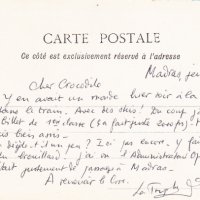 CARTE POSTALE
Ce côté est exclusivement réservé à l'adresse
Madras, jeu
Cher Crocodile
y en avait un monde hier soir à la
dans le train. Avec des skis! Du coup j'ai
billet de 1ère classe (ça fait juste
suis bien assis.
dégèle-t-il un peu? Ici pas encore. Y fait
brouillard. j'ai vu l'Administrateur
était justement de passage à Madras.
A revoir le lire.
Le